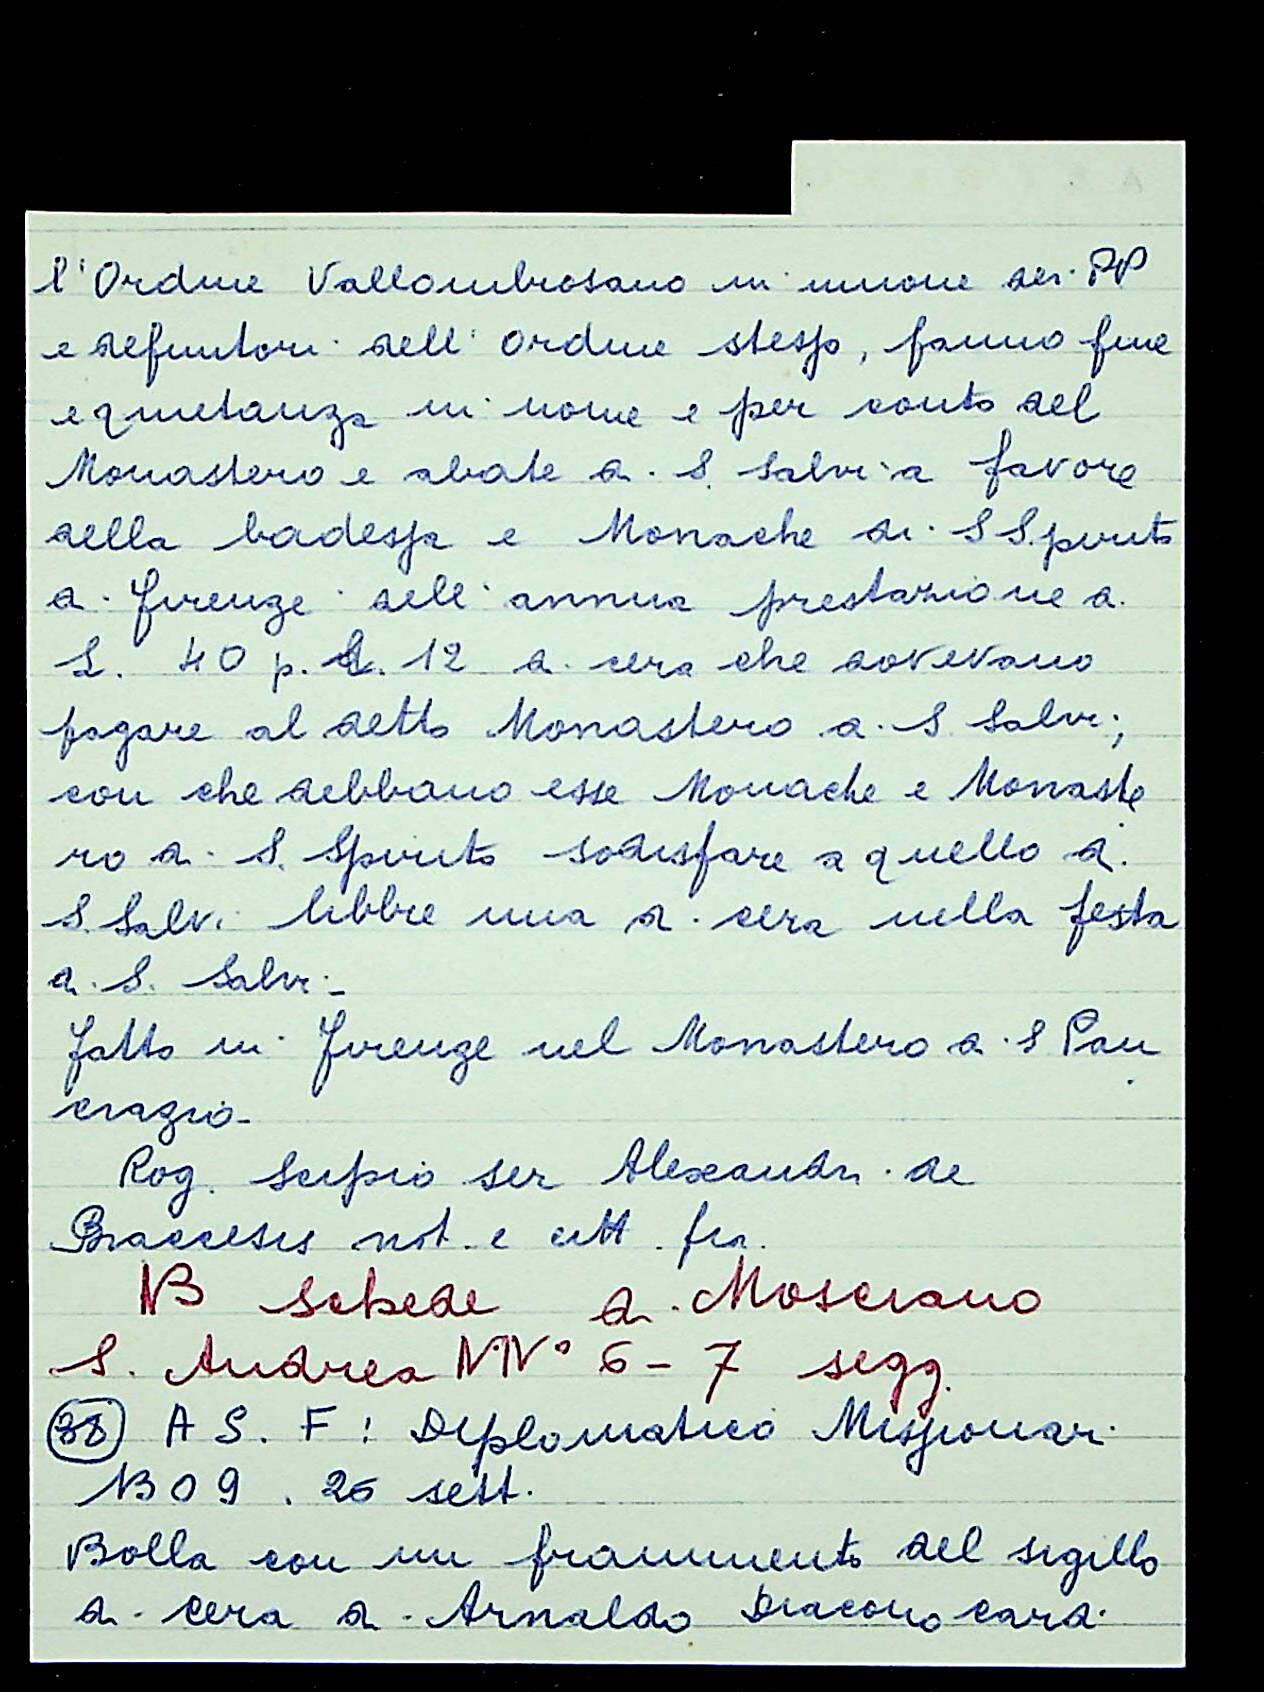 l'Ordine Vallombrosano in unione dei PP
e definitori dell'ordine stesso, fanno fine
e quietanza in nome e per conto del
Monastero e abate di S. Salvi a favore
della badessa e Monache di S Spirito
di Firenze dell'annua prestazione di
L. 40 p. L. 12 di cera che dovevano
pagare al detto Monastero di S Salvi;
con che debbano esse Monache e Monaste
ro di S. Spirito sodisfare a quello di
S. Salvi libbre una di cera nella festa
di S. Salvi -
fatto in Firenze nel Monastero di S Pan
crazio -
Rog. Scipio ser Alexandri de
Braccesis not. e citt. fio.
NB schede di Mosciano
S. Andrea NN° 6 - 7 segg.
(38) A S. F: Diplomatico Missionari
1309. 26 sett.
Bolla con un frammento del sigillo
di cera di Arnaldo Diacono card.